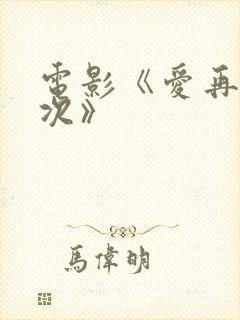 電影《愛再
次》
馬偉明